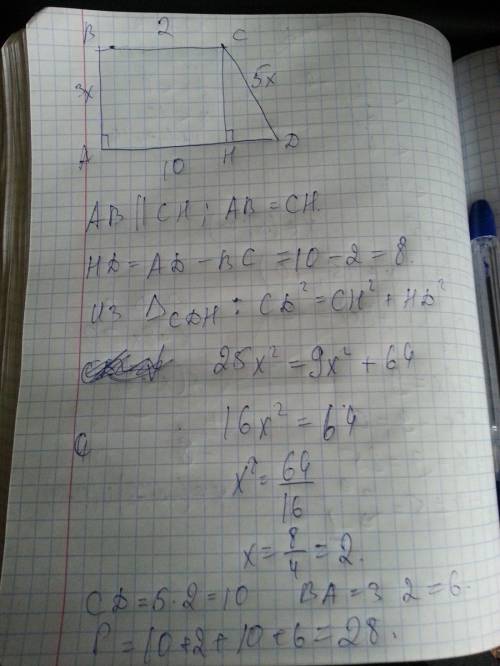 2
B C
3x 5x
A H D
10
AB || CH ; AB = CH.
HD = AD - BC = 10 - 2 = 8.
из △CDH : CD² = CH² + HD²
25x² = 9x² + 64
16x² = 64
x² = 64/16
x = 8/4 = 2.
CD = 5 · 2 = 10 BA = 3 · 2 = 6.
P = 10 + 2 + 10 + 6 = 28.